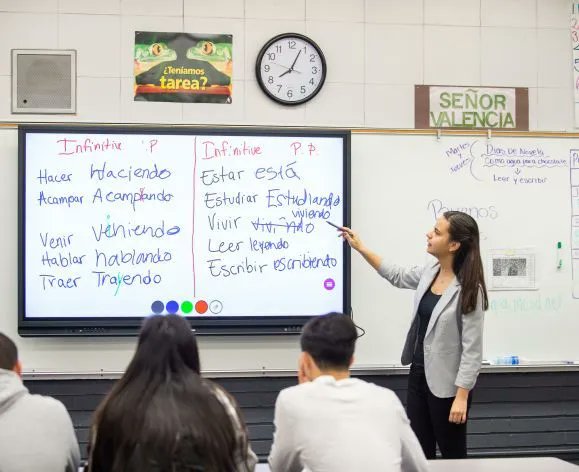 ¿Teníamos
tarea?
SEÑOR
VALENCIA
Infinitive P
Hacer Haciendo
Acampar Acampando
Venir Viniendo
Hablar hablando
Traer Trayendo
Infinitive P.P.
Estar está
Estudiar Estudiando
viviendo
Vivir
Leer leyendo
Escribir escribiendo
Martes
y
Jueves
Diario De Novela
Como agua para chocolate
Leer y escribir
Buenos
11 12 1 2 3 4 5 6 7 8 9 10